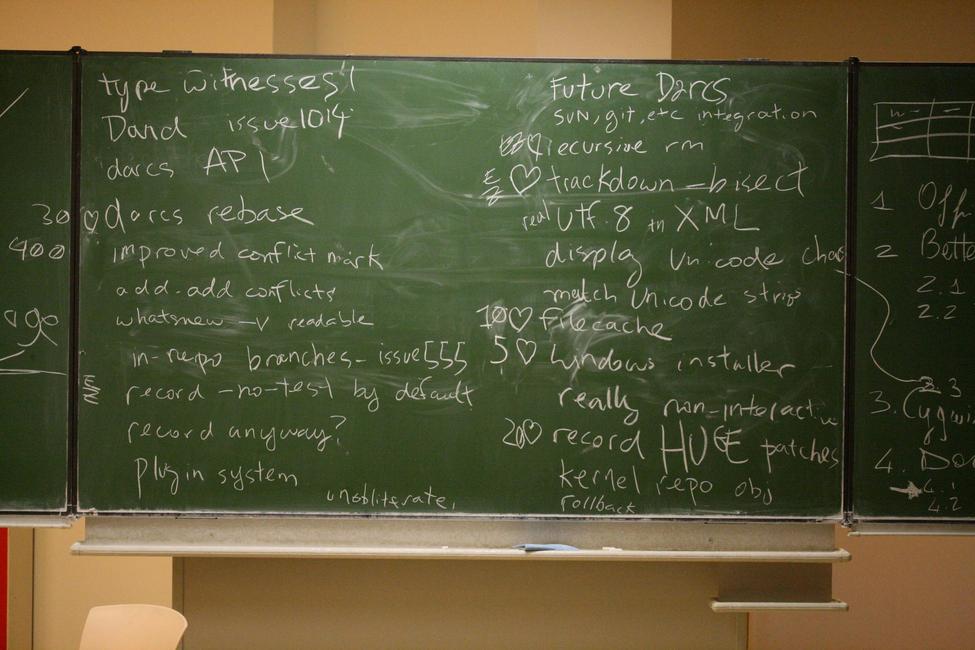 type witnesses!
David issue1014
darcs API
30 ♡ darcs rebase
400
improved conflict mark
add-add conflicts
whatsnew -v readable
ago
in-repo branches - issue555
record -no-test by default
record anyway?
plugin system
unobliterate,
Future Darcs
SVN, git, etc integration
♡ recursive rm
♡ trackdown -bisect
real UTF-8 in XML
display Unicode chars
match Unicode strings
10 ♡ filecache
5 ♡ Windows installer
really non-interactive
20 ♡ record HUGE patches
kernel repo obj
rollback
1 Off
2 Bette
2.1
2.2
2.3
3. Cygwin
4. Do
4.1
4.2